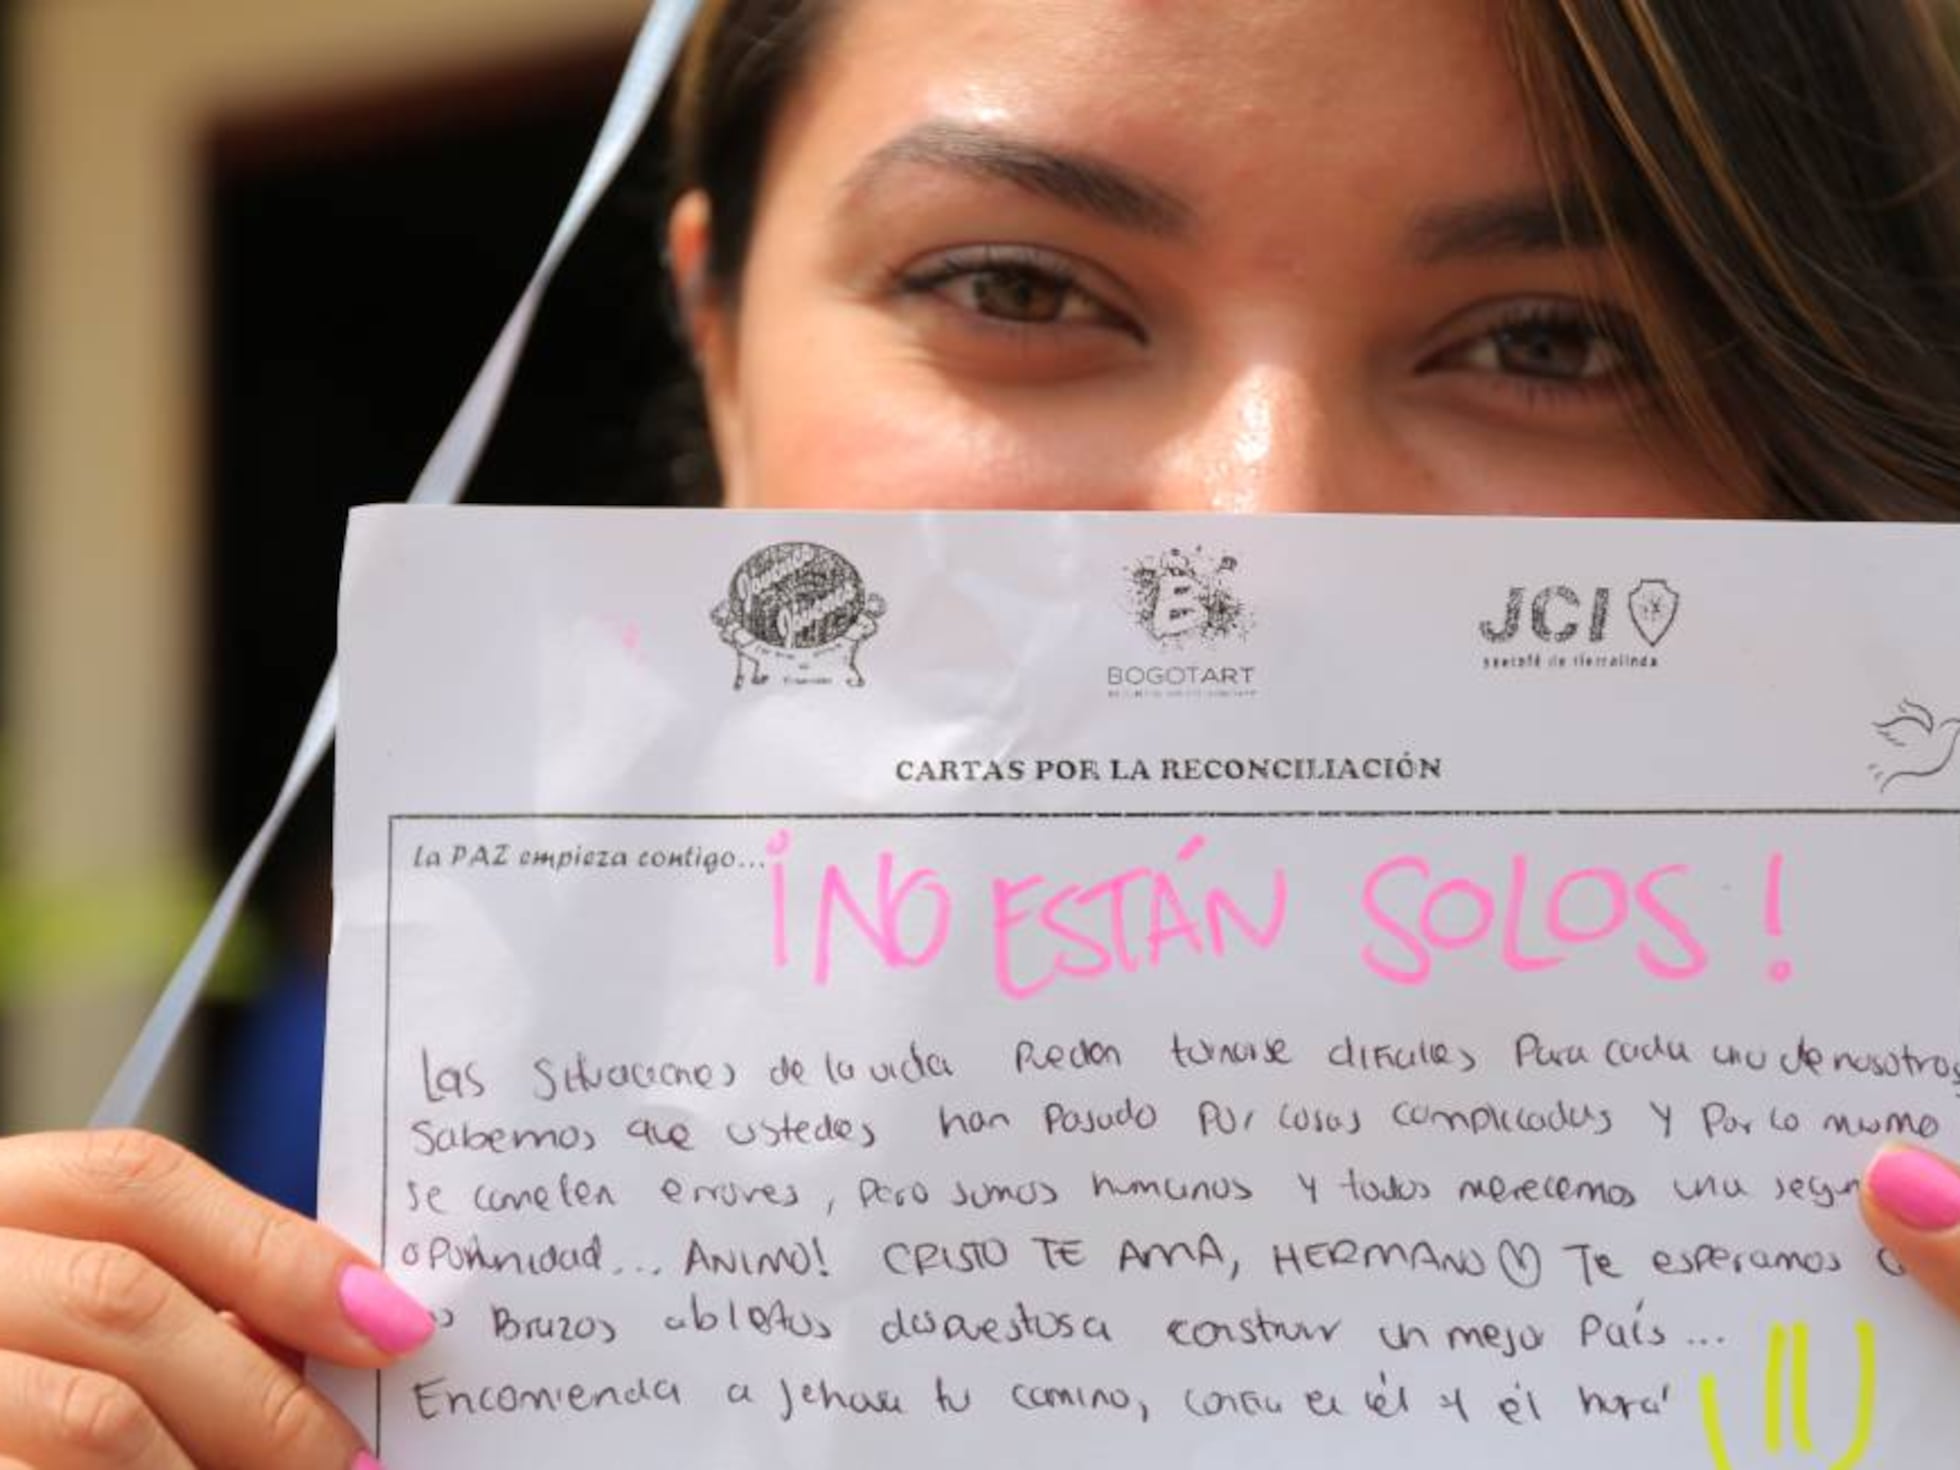 Jóvenes
Jóvenes
B
BOGOTART
JCI
CARTAS POR LA RECONCILIACIÓN
La PAZ empieza contigo...
¡NO ESTÁN SOLOS!
Las situaciones de la vida pueden tornarse difíciles para cada uno de nosotros
Sabemos que ustedes han pasado por cosas complicadas y por lo mismo
se cometen errores, pero somos humanos y todos merecemos una segun
oportunidad... ANIMO! CRISTO TE AMA, HERMANO Te esperamos
Brazos abiertos dispuestos a construir un mejor País...
Encomienda a Jehova tu camino, confia en él y él hará